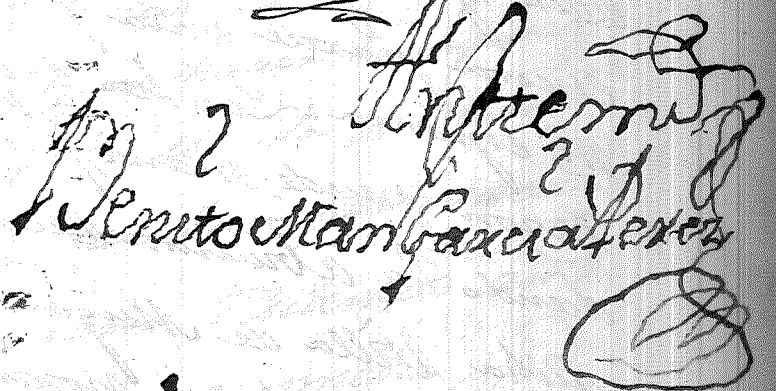 Anttemi
Benito Man Garcia Perez